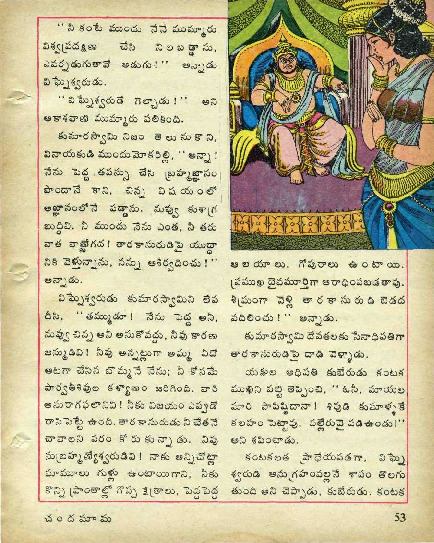 "నీకంటే ముందు నేనే ముమ్మారు
విశ్వప్రదక్షిణ చేసి నిలబడ్డాను,
ఎవర్నడుగుతావో అడుగు!" అన్నాడు
విఘ్నేశ్వరుడు.
"విఘ్నేశ్వరుడే గెల్చాడు!" అని
ఆకాశవాణి ముమ్మారు పలికింది.
కుమారస్వామి నిజం తెలుసుకొని,
వినాయకుడి ముందు మోకరిల్లి, "అన్నా!
నేను పెద్ద తపస్సు చేసి బ్రహ్మజ్ఞానం
పొందానే కాని, చిన్న విషయంలో
అజ్ఞానంలోనే పడ్డాను. నువ్వు కుశాగ్ర
బుద్ధివి. నీ ముందు నేను ఎంత, నీ తరు
వాత వాణ్ణేగద! తారకాసురుడిపై యుద్ధా
నికి వెళ్తున్నాను, నన్ను ఆశీర్వదించు!"
అన్నాడు.
విఘ్నేశ్వరుడు కుమారస్వామిని లేవ
దీసి, "తమ్ముడూ! నేను పెద్ద అని,
నువ్వు చిన్న అని అనుకోవద్దు, నీవు కారణ
జన్ముడివి! నీవు అన్నట్లుగా అమ్మ ఏదో
ఆటగా చేసిన బొమ్మనే నేను; నీ కోసమే
పార్వతీశివుల కళ్యాణం జరిగింది. వారి
అనురాగఫలానివి! నీకు విజయం ఎప్పుడో
రాసిపెట్టే ఉంది. తారకాసురుడు నీచేతనే
చావాలని వరం కోరుకున్నాడు. నీవు
సుబ్రహ్మణ్యేశ్వరుడివి! నాకు అన్నిచోట్లా
మామూలు గుళ్లు ఉంటాయిగాని, నీకు
కొన్ని ప్రాంతాల్లో గొప్ప క్షేత్రాలు, పెద్దపెద్ద
ఆలయాలు, గోపురాలు ఉంటాయి.
ప్రముఖ దైవమూర్తిగా ఆరాధింపబడతావు.
శీఘ్రంగా వెళ్లి తారకాసురుడి బెడద
వదిలించు!" అన్నాడు.
కుమారస్వామి దేవతలకు సేనాధిపతిగా
తారకాసురుడిపై దాడి వెళ్ళాడు.
యక్షుల అధిపతి కుబేరుడు కంటక
ముఖిని పట్టి తెప్పించి, "ఓసీ, మాయల
మారి పాపిష్ఠిదానా! శివుడి కుమాళ్ళకే
కలహం పెట్టావు. పల్లేరువై పడిఉండు!"
అని శపించాడు.
కంటకలత ప్రాధేయపడగా, విఘ్నే
శ్వరుడి అనుగ్రహంవల్లనే శాపం తొలగు
తుంది అని చెప్పాడు, కుబేరుడు. కంటక
చందమామ
53